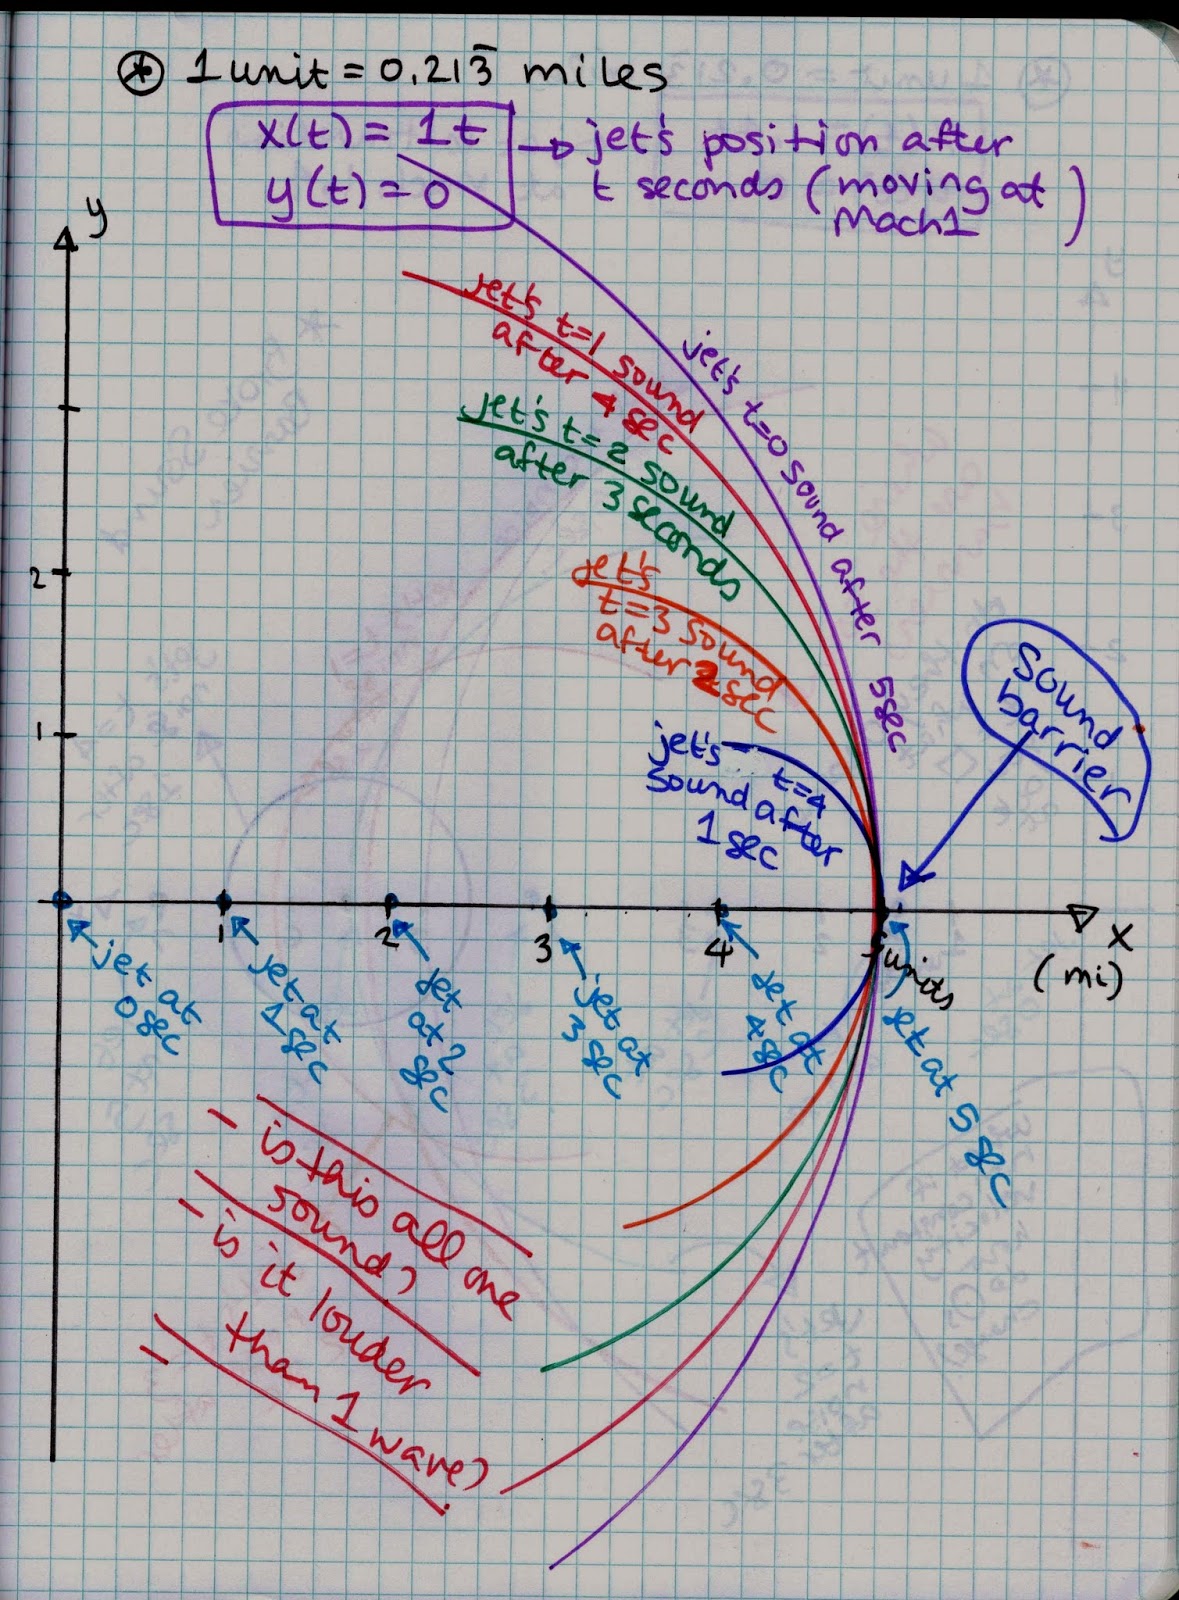 ⊛ 1 unit = 0.213̅ miles
x(t) = 1t
y(t) = 0
→ jet's position after
t seconds (moving at
Mach1)
y
jet's t=1 sound
after 4 sec
jet's t=0 sound after 5sec
jet's t=2 sound
after 3 seconds
jet's
t=3 sound
after 2 sec
2
Sound
barrier
1
jet's
t=4
sound after
1 sec
1
2
3
4
5 units
x
(mi)
jet at
0 sec
jet at
1 sec
jet
at 2
sec
jet at
3 sec
jet at
4 sec
jet at 5
sec
- is this all one
sound?
- is it louder
than 1 wave?
-